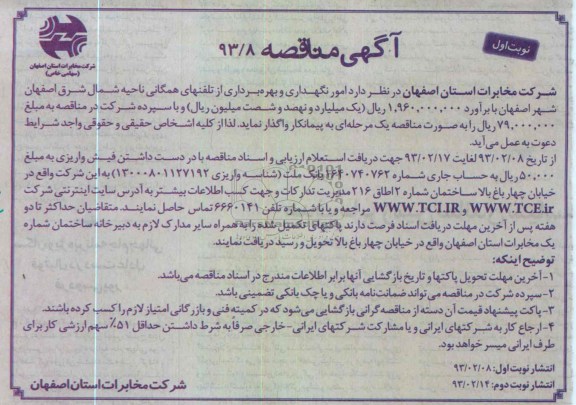 نوبت اول
آگهی مناقصه ۹۳/۸
شرکت مخابرات استان اصفهان
(سهامی خاص)
شرکت مخابرات استان اصفهان در نظر دارد امور نگهداری و بهره‌برداری از تلفنهای همگانی ناحیه شمال شرق اصفهان
شهر اصفهان با برآورد ۱,۹۶۰,۰۰۰,۰۰۰ ریال (یک میلیارد و نهصد و شصت میلیون ریال) و با سپرده شرکت در مناقصه به مبلغ
۷۹,۰۰۰,۰۰۰ ریال را به صورت مناقصه یک مرحله‌ای به پیمانکار واگذار نماید. لذا از کلیه اشخاص حقیقی و حقوقی واجد شرایط
دعوت به عمل می‌آید.
از تاریخ ۹۳/۰۲/۰۸ لغایت ۹۳/۰۲/۱۷ جهت دریافت استعلام ارزیابی و اسناد مناقصه با در دست داشتن فیش واریزی به مبلغ
۵۰,۰۰۰ ریال به حساب جاری شماره ۱۶۴۰۷۴۰۷۶۲ بانک ملت (شناسه واریزی ۱۳۰۰۰۸۰۱۱۲۷۱۹۲) به این شرکت واقع در
خیابان چهارباغ بالا ساختمان شماره ۲ اطاق ۲۱۶ مدیریت تدارکات و جهت کسب اطلاعات بیشتر به آدرس سایت اینترنتی شرکت
WWW.TCE.ir و WWW.TCI.IR مراجعه و یا با شماره تلفن ۶۶۶۰۱۴۱ تماس حاصل نمایند. متقاضیان حداکثر تا دو
هفته پس از آخرین مهلت دریافت اسناد فرصت دارند پاکتهای تکمیل شده را به همراه سایر مدارک لازم به دبیرخانه ساختمان شماره
یک مخابرات استان اصفهان واقع در خیابان چهارباغ بالا تحویل و رسید دریافت نمایند.
توضیح اینکه:
۱-آخرین مهلت تحویل پاکتها و تاریخ بازگشایی آنها برابر اطلاعات مندرج در اسناد مناقصه می‌باشد.
۲-سپرده شرکت در مناقصه می تواند ضمانت‌نامه بانکی و یا چک بانکی تضمینی باشد.
۳-پاکت پیشنهاد قیمت آن دسته از مناقصه گرانی بازگشایی می‌شود که در کمیته فنی و بازرگانی امتیاز لازم را کسب کرده باشند.
۴-ارجاع کار به شرکتهای ایرانی و یا مشارکت شرکتهای ایرانی-خارجی صرفاً به شرط داشتن حداقل ۵۱٪ سهم ارزشی کار برای
طرف ایرانی میسر خواهد بود.
انتشار نوبت اول: ۹۳/۰۲/۰۸
انتشار نوبت دوم: ۹۳/۰۲/۱۴
شرکت مخابرات استان اصفهان